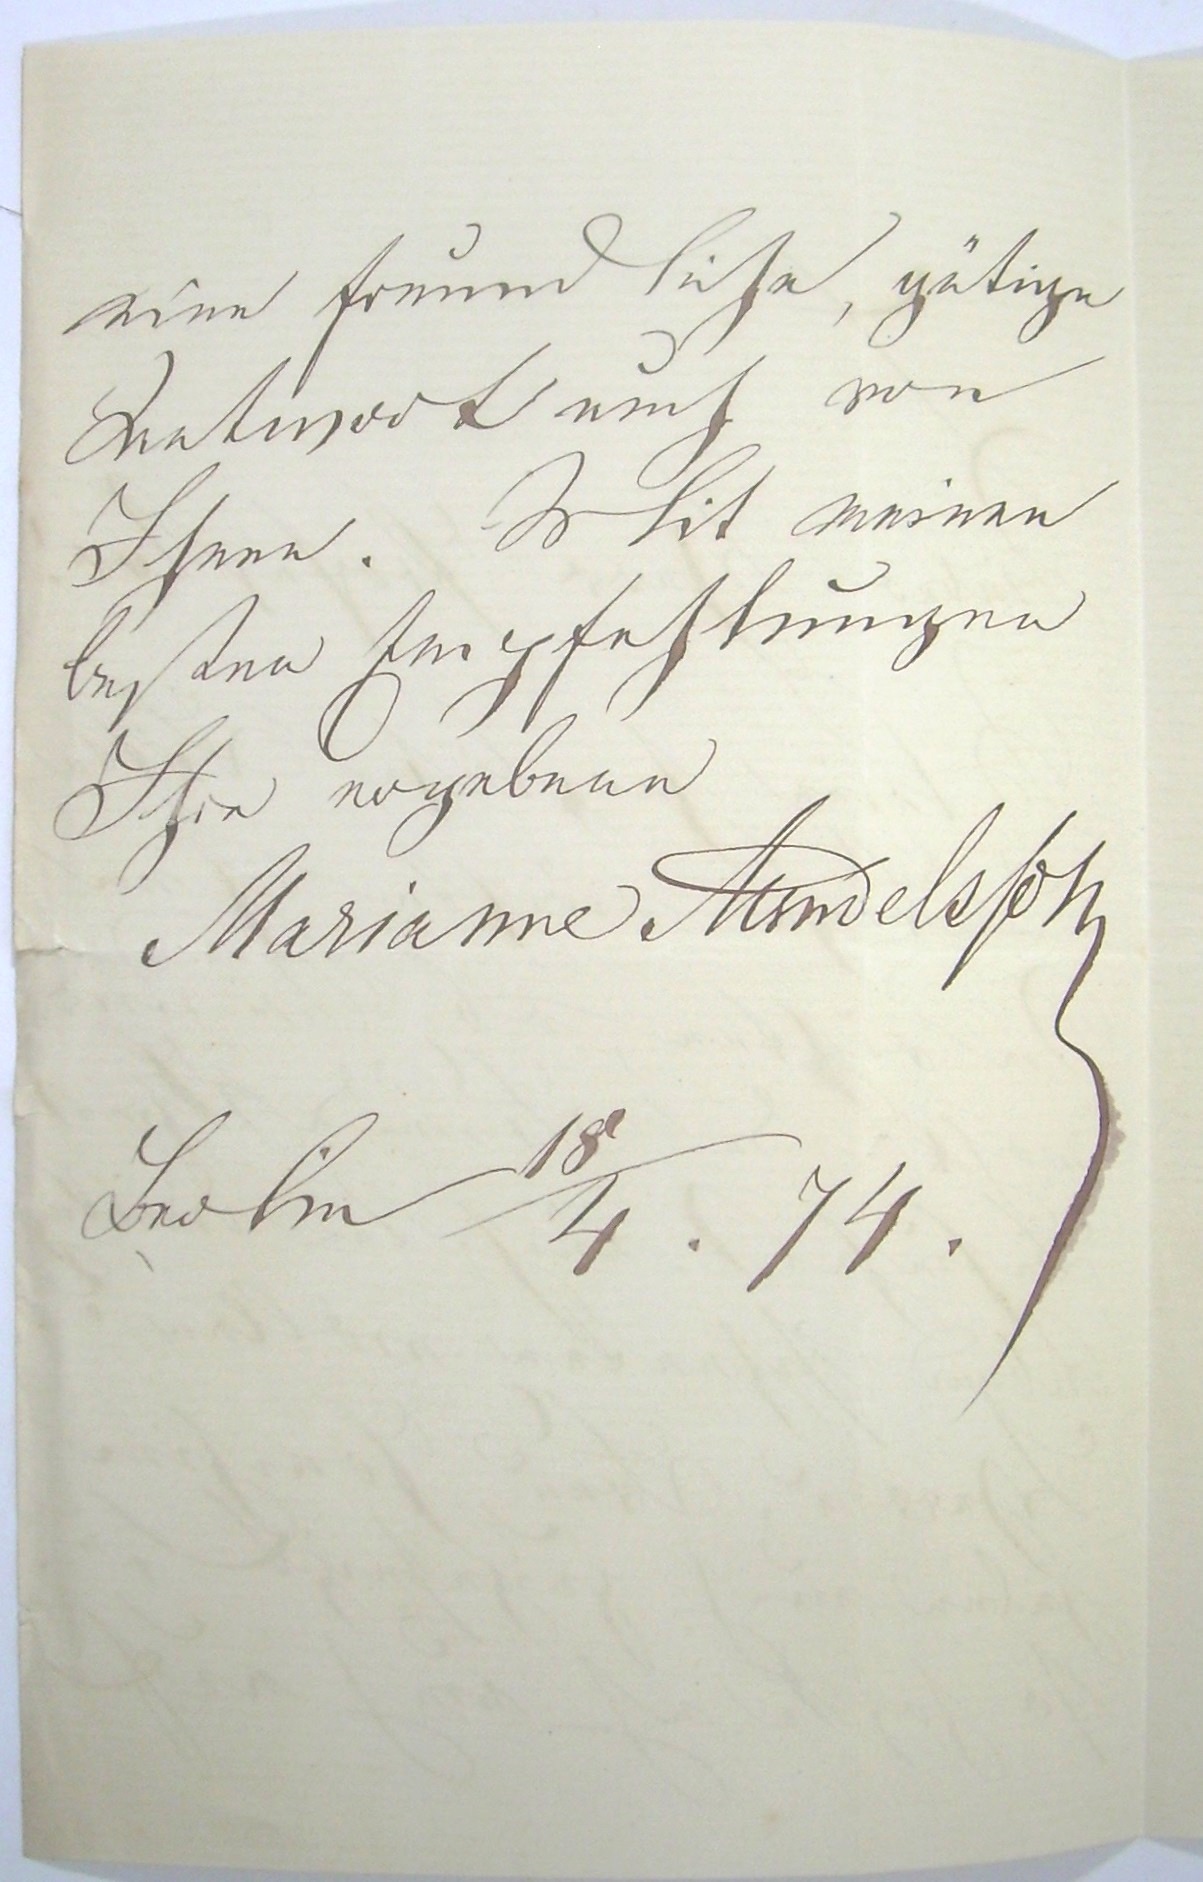 eine freundliche, gütige
Antwort auch von
Ihnen. Mit meinen
besten Empfehlungen
Ihre ergebene
Marianne Mendelssohn
Berlin 18/4. 74.